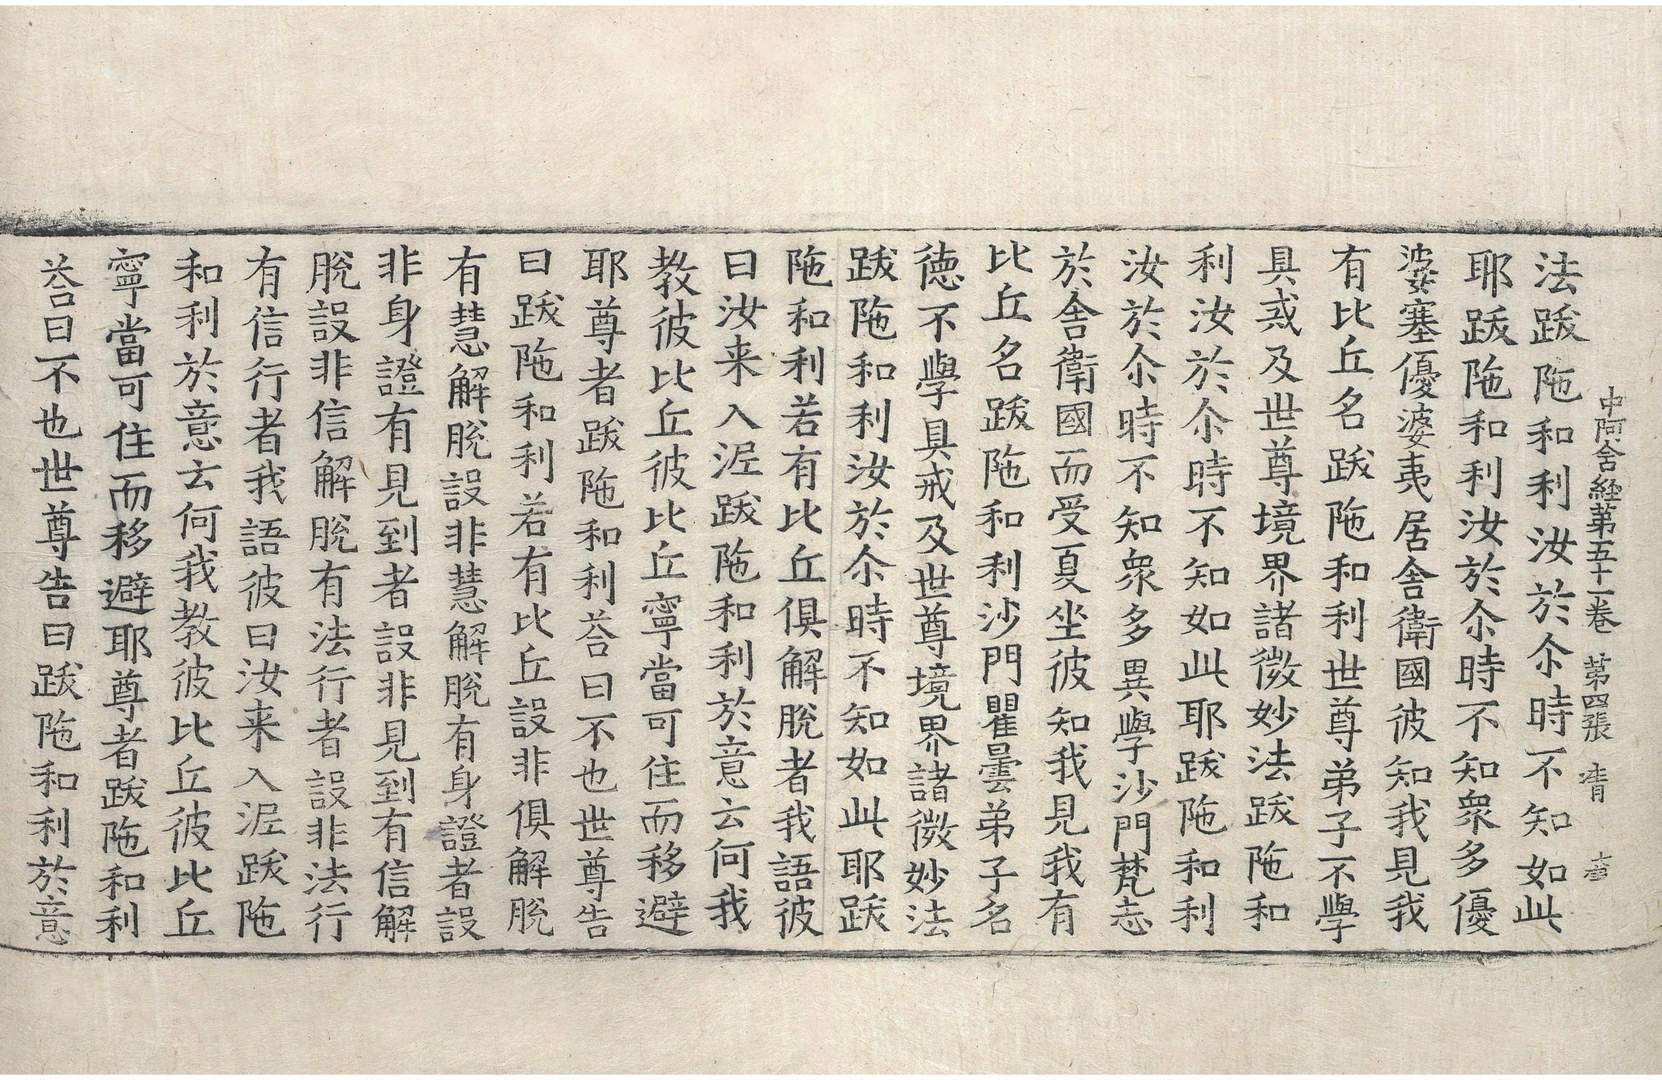 中阿含經第五十一卷 第四張
法跋陁和利汝於尒時不知如此
耶跋陁和利汝於尒時不知衆多優
婆塞優婆夷居舍衛國彼知我見我
有比丘名跋陁和利世尊弟子不學
具戒及世尊境界諸微妙法跋陁和
利汝於尒時不知如此耶跋陁和利
汝於尒時不知衆多異學沙門梵志
於舍衛國而受夏坐彼知我見我有
比丘名跋陁和利沙門瞿曇弟子名
德不學具戒及世尊境界諸微妙法
跋陁和利汝於尒時不知如此耶跋
陁和利若有比丘俱解脫者我語彼
曰汝来入泥跋陁和利於意云何我
教彼比丘彼比丘寧當可住而移避
耶尊者跋陁和利荅曰不也世尊告
曰跋陁和利若有比丘設非俱解脫
有慧解脫設非慧解脫有身證者設
非身證有見到者設非見到有信解
脫設非信解脫有法行者設非法行
有信行者我語彼曰汝来入泥跋陁
和利於意云何我教彼比丘彼比丘
寧當可住而移避耶尊者跋陁和利
荅曰不也世尊告曰跋陁和利於意